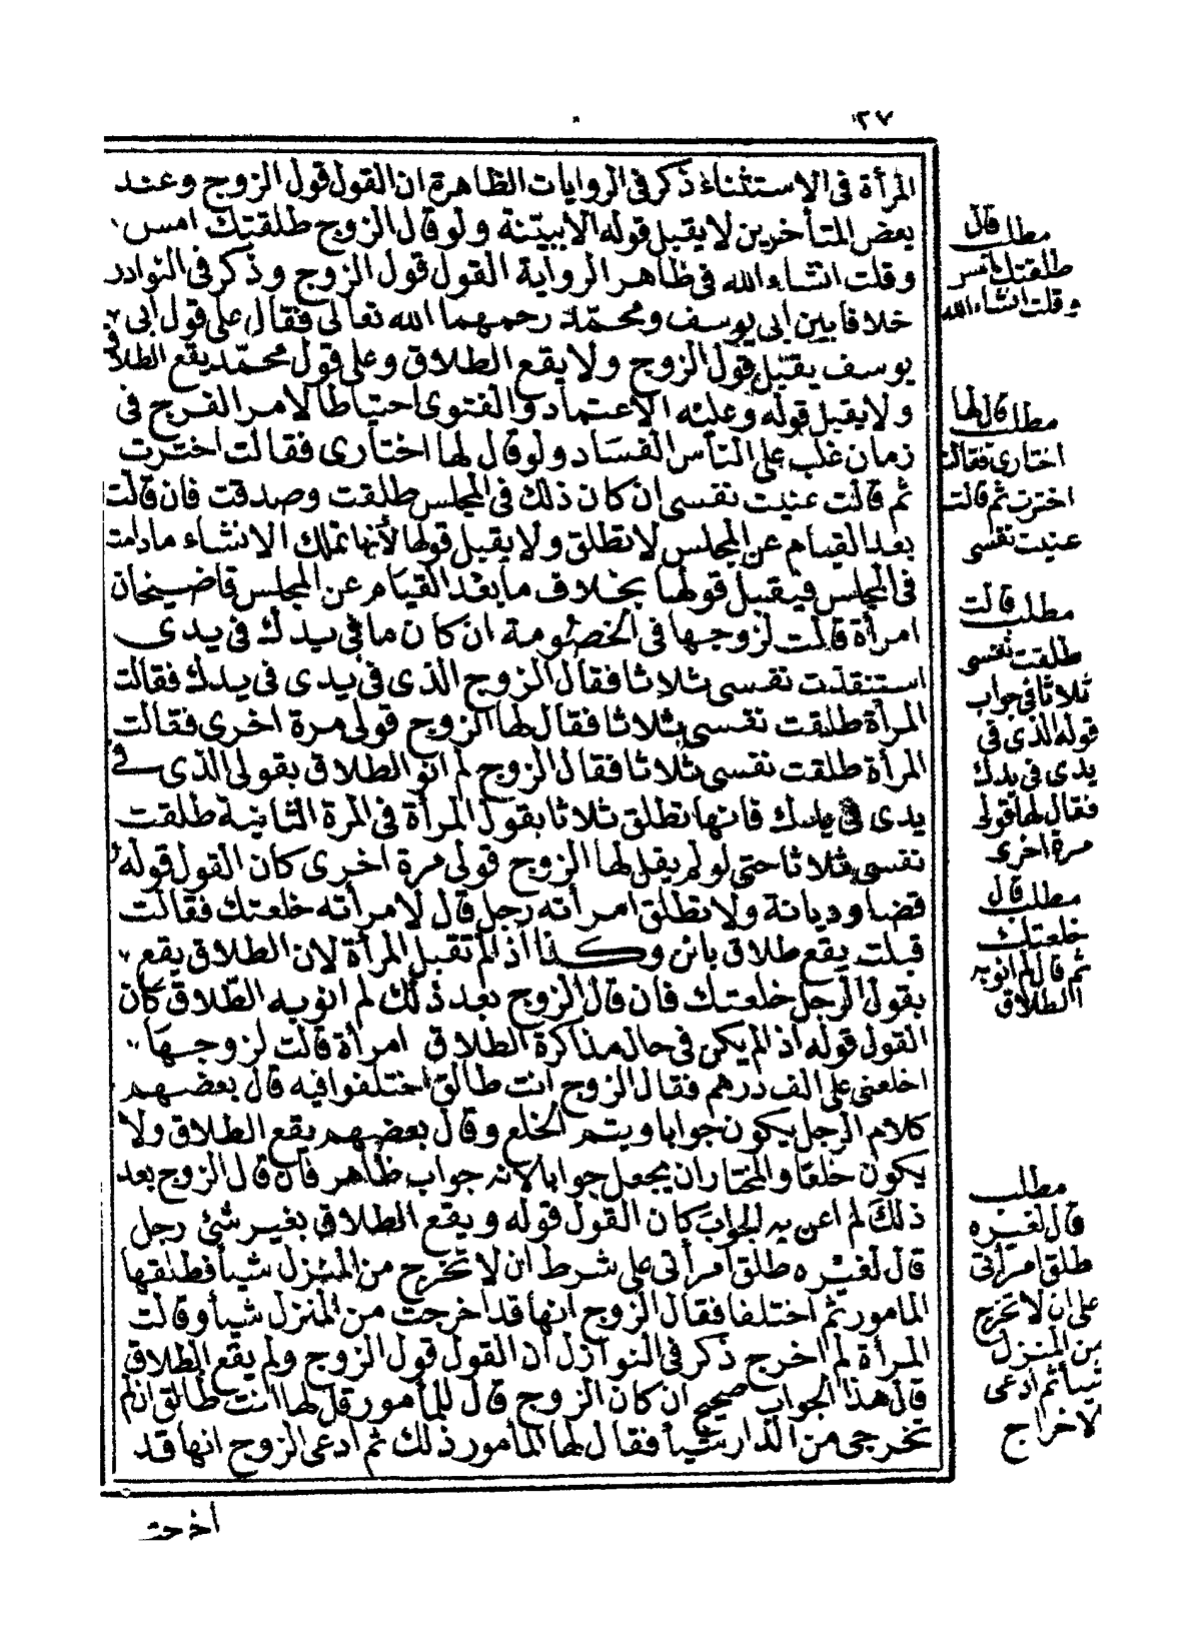 ٢٧
المرأة فى الاستثناء ذكر فى الروايات الظاهرة ان القول قول الزوج وعند
بعض المتأخرين لا يقبل قوله الا ببيّنة ولو قال الزوج طلقتك امس
وقلت انشاء الله فى ظاهر الرواية القول قول الزوج وذكر فى النوادر
خلافا بين ابى يوسف ومحمّد رحمهما الله تعالى فقال على قول ابى
يوسف يقبل قول الزوج ولا يقع الطلاق وعلى قول محمّد يقع الطلاق
ولا يقبل قوله وعليه الاعتماد والفتوى احتياطا لامر الفرج فى
زمان غلب على النأس الفسَاد ولو قال لها اختارى فقالت اخترت
ثم قالت عنيت نفسى ان كان ذلك فى المجلس طلقت وصدقت فان قالت
بعد القيام عن المجلس لا تطلق ولا يقبل قولها لأنها تملك الانشاء مادامت
فى المجلس فيقبل قولها بخلاف ما بعد القيَام عن المجلس قاضيخان
امرأة قالت لزوجها فى الخصُومة ان كان ما فى يدك فى يدى
استنقذت نفسى ثلاثا فقال الزوج الذى فى يدى فى يدك فقالت
المرأة طلقت نفسى ثلاثا فقال لها الزوج قولى مرة اخرى فقالت
المرأة طلقت نفسى ثلاثا فقال الزوج لم انو الطلاق بقولى الذى فى
يدى فى يدك فانها تطلق ثلاثا بقول المرأة فى المرة الثانية طلقت
نفسى ثلاثا حتى لو لم يقل لها الزوج قولى مرة اخرى كان القول قوله
قضا وديانة ولا تطلق امرأته رجل قال لامرأته خلعتك فقالت
قبلت يقع طلاق بائن وكذا اذا لم تقبل المرأة لان الطلاق يقع
بقول الرجل خلعتك فان قال الزوج بعد ذلك لم انو به الطّلاق كان
القول قوله اذا لم يكن فى حال مذاكرة الطلاق امرأة قالت لزوجهَا
اخلعنى على الف درهم فقال الزوج انت طالق اختلفوا فيه قال بعضهم
كلام الرجل يكون جوابا ويتم الخلع وقال بعضهم يقع الطلاق ولا
يكون خلعا والمختار ان يجعل جوابا لانه جواب ظاهر فان قال الزوج بعد
ذلكَ لم اعن به الجوابَ كان القول قوله ويقع الطلاق بغير شئ رجل
قال لغيره طلق امرأتى على شرط ان لا تخرج من المنزل شيأ فطلقها
المامور ثم اختلفا فقال الزوج انها قد اخرجت من المنزل شيأ وقالت
المرأة لم اخرج ذكر فى النوازل ان القول قول الزوج ولم يقع الطلاق
قال هذا الجواب صحيح ان كان الزوج قال للمأمور قل لها انت طالق ان لم
تخرجى من الدار شيأ فقال لها المأمور ذلك ثم ادعى الزوج انها قد
اخرجت
مطلب قال
طلقتك امس
وقلت انشاء الله
مطلب قال لها
اختارى فقالت
اخترت ثم قالت
عنيت نفسى
مطلب قالت
طلقت نفسى
ثلاثا فى جواب
قوله الذى فى
يدى فى يدك
فقال لها قولى
مرة اخرى
مطلب قال
خلعتك
ثم قال لم انو به
الطلاق
مطلب
قال لغيره
طلق امرأتى
على ان لا تخرج
من المنزل
شيأ ثم ادعى
الاخراج